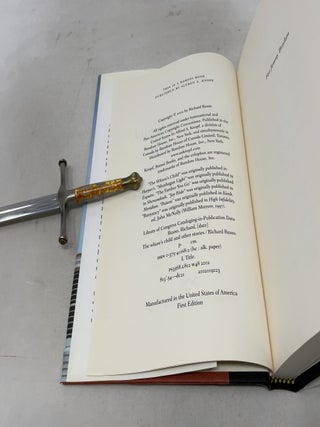 THIS IS A BORZOI BOOK
PUBLISHED BY ALFRED A. KNOPF
Copyright © 2002 by Richard Russo
All rights reserved under International and
Pan-American Copyright Conventions. Published in the
United States by Alfred A. Knopf, a division of
Random House, Inc., New York, and simultaneously in
Canada by Random House of Canada Limited, Toronto.
Distributed by Random House, Inc., New York.
www.aaknopf.com
Knopf, Borzoi Books, and the colophon are registered
trademarks of Random House, Inc.
"The Whore's Child" was originally published in
Harper's, "Monhegan Light" was originally published
in "The Farther You Go" was originally published
in Shenandoah, "Joy Ride" was originally published in
Meridian, "Poison" was originally published in Kiosk,
"Buoyancy" was originally published in High Infidelity,
ed. John McNally (William Morrow, 1997).
Library of Congress Cataloging-in-Publication Data
Russo, Richard, [date]
The whore's child and other stories / Richard Russo.
p. cm.
(hc : alk. paper)
I. Title.
PS3568.U812 W48 2002
813'.54—dc21
Manufactured in the United States of America
First Edition